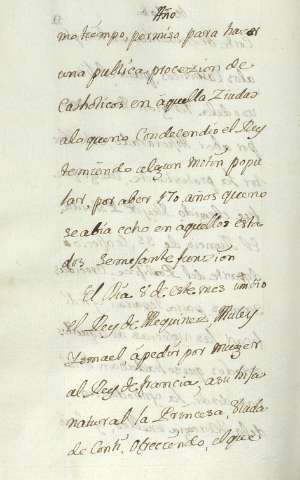 Año
mo tiempo, permiso, para hacer
una publica procession de
Catholicos en aquella Ziudad
alo queno Condecendio el Rey
temiendo algun motin popu
lar, por aber 170, años queno
se abia echo en aquellos esta
dos Semejante funzion
El Dia 5 de este mes imbio
el Rey de Mequinez Muley
Ismael a pedir por muger
al Rey de francia, a su hija
natural la Princesa, Viuda
de Conti, Ofreciendo, el que